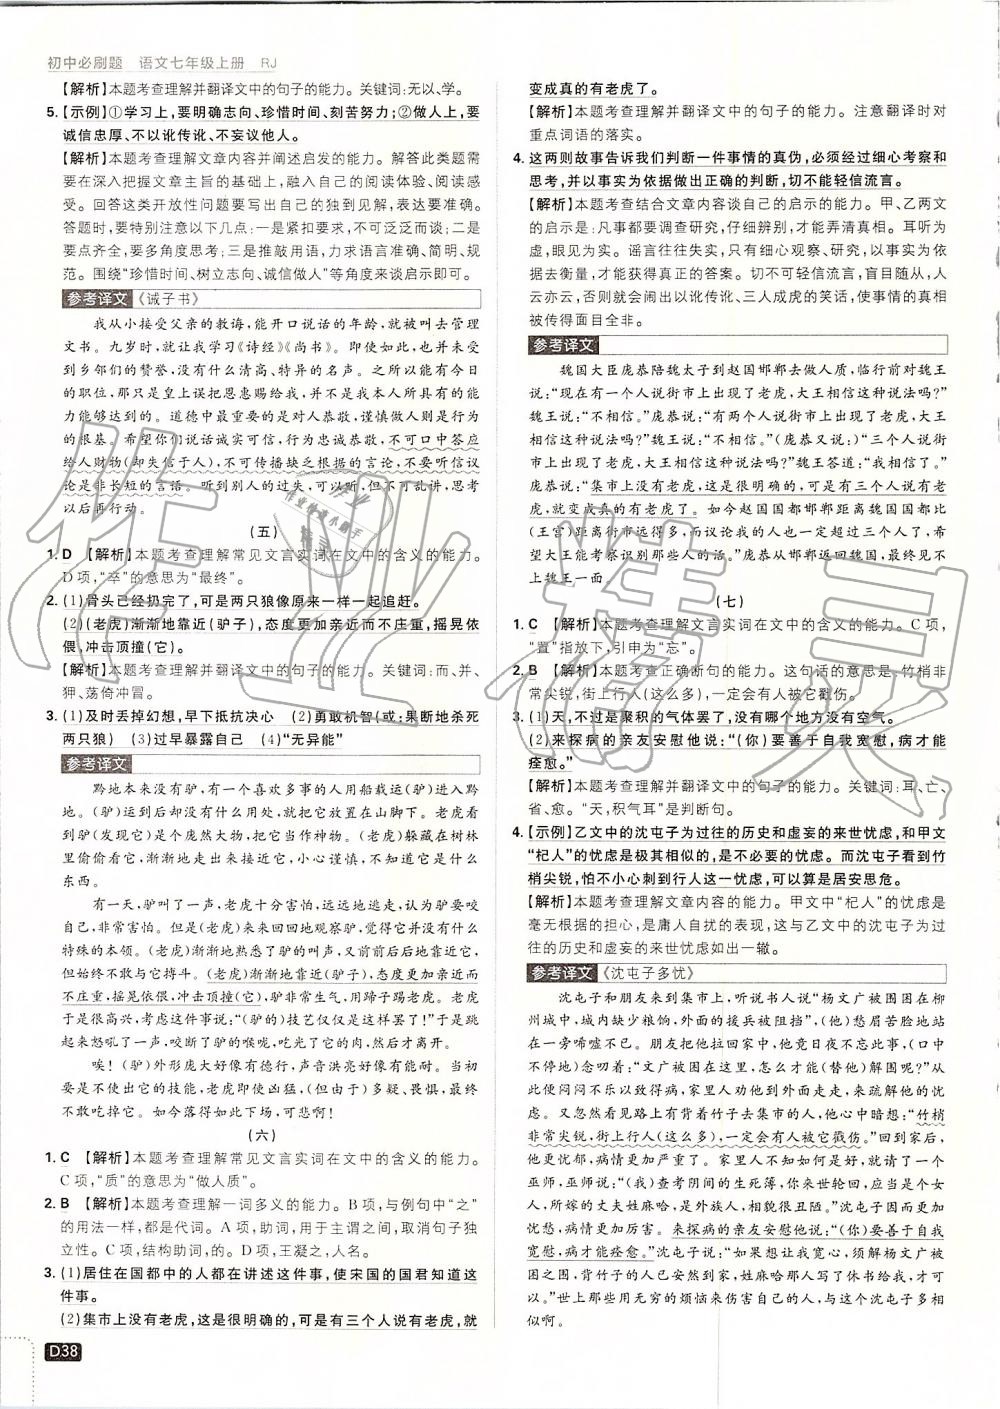 初中必刷题　语文七年级上册　RJ
【解析】本题考查理解并翻译文中的句子的能力。关键词:无以、学。
5.【示例】①学习上,要明确志向、珍惜时间、刻苦努力;②做人上,要
诚信忠厚、不以讹传讹、不妄议他人。
【解析】本题考查理解文章内容并阐述启发的能力。解答此类题
需在深入把握文章主旨的基础上,融入自己的阅读体验、阅读感
受。回答这类开放性问题要写出自己的独到见解,表达要准确。
答题时,要特别注意以下几点:一是紧扣要求,不可泛泛而谈;二是
要点齐全,要多角度思考;三是推敲用语,力求语言准确、简明、规
范。围绕“珍惜时间、树立志向、诚信做人”等角度来谈启示即可。
参考译文《诫子书》
我从小接受父亲的教诲,能开口说话的年龄,就被叫去管理
文书。九岁时,就让我学习《诗经》《尚书》。即使如此,也并未受
到乡邻们的赞誉,没有什么清高、特异的名声。之所以能有今日
的职位,那只是皇上误把恩惠赐给我,并不是本人所具有的能
力能够达到的。道德中最重要的是对人恭敬,谨慎做人则是行为
的根基。希望你们说话诚实可信,行为忠诚恭敬,不可口中答应
给人财物(却失信于人),不可传播缺乏根据的言论,不要听信议
论是非长短的言语。听到别人的过失,可以听,但不可乱讲,思考
以后再行动。
(五)
1. D　【解析】本题考查理解常见文言实词在文中的含义的能力。
D项,“卒”的意思为“最终”。
2. (1)骨头已经扔完了,可是两只狼像原来一样一起追赶。
(2)(老虎)渐渐地靠近(驴子),态度更加亲近而不庄重,摇晃依
偎,冲击顶撞(它)。
【解析】本题考查理解并翻译文中的句子的能力。关键词:而、并、
狎、荡倚冲冒。
3. (1)及时丢掉幻想,早下抵抗决心　(2)勇敢机智(或:果断地杀死
两只狼)　(3)过早暴露自己　(4)“无异能”
参考译文
黔地本来没有驴,有一个喜欢多事的人用船载运(驴)进入黔
地。(驴)运到后却没有什么用处,就把它放置在山脚下。老虎看
到驴(发现它)是个庞然大物,把它当作神物。(老虎)躲藏在树林
里偷偷看它,渐渐地走出来接近它,小心谨慎,不知道它是什么
东西。
有一天,驴叫了一声,老虎十分害怕,远远地逃走,认为驴要咬
自己,非常害怕。但是(老虎)来来回回地观察驴,觉得它没有什么
特殊的本领。(老虎)渐渐地熟悉了驴的叫声,又前前后后地靠近它,
但始终不敢与它搏斗。(老虎)渐渐地靠近(驴子),态度更加亲近而
不庄重,摇晃依偎,冲击顶撞(它),驴非常生气,用蹄子踢老虎。老虎
于是很高兴,考虑这件事,说:“(驴的)技艺仅仅是这样罢了!”于是跳起
来大吼了一声,咬断了驴的喉咙,吃光了它的肉,然后才离开。
唉!(驴)外形庞大好像有德行,声音洪亮好像有能耐。当初
要是不使出它的技能,老虎即使凶猛,(但由于)多疑、畏惧,最终
不敢吃掉它。如今落得如此下场,可悲啊!
(六)
1. C　【解析】本题考查理解常见文言实词在文中的含义的能力。
C项,“质”的意思为“做人质”。
2. B　【解析】本题考查理解一词多义的能力。B项,与例句中“之”
的用法一样,都是代词。A项,助词,用于主谓之间,取消句子独
立性。C项,结构助词,的。D项,王凝之,人名。
3. (1)居住在国都中的人都在讲述这件事,使宋国的国君知道这
件事。
(2)集市上没有老虎,是很明确的,可是有三个人说有老虎,就
D38
变成真的有老虎了。
【解析】本题考查理解并翻译文中的句子的能力。注意翻译时对
重点词语的落实。
4. 这两则故事告诉我们判断一件事情的真伪,必须经过细心考察和
思考,并以事实为依据做出正确的判断,切不能轻信流言。
【解析】本题考查结合文章内容谈自己的启示的能力。甲、乙两文
的启示是:凡事都要调查研究,仔细辨别,才能弄清真相。耳听为
虚,眼见为实。谣言往往失实,只有细心观察、研究,以事实为依
据去衡量,才能获得真正的答案。切不可轻信流言,盲目随从,人
云亦云,否则就会闹出以讹传讹、三人成虎的笑话,使事情的真相
被传得面目全非。
参考译文
魏国大臣庞恭陪魏太子到赵国邯郸去做人质,临行前对魏王
说:“现在如果有一个人说街市上出现了老虎,大王相信这种说法吗?”
魏王说:“不相信。”庞恭说:“有两个人说街市上出现了老虎,大王
相信这种说法吗?”魏王说:“不相信。”(庞恭又说:)“三个人说街
市上出现了老虎,大王相信这种说法吗?”魏王答道:“我相信了。”
庞恭说:“集市上没有老虎,是很明确的,可是有三个人说有老
虎,就变成真的有老虎了。如今赵国国都邯郸距离魏国国都比
(王宫)距离街市远得多,而议论我的人也一定超过三个人了,希
望大王能考察识别那些人的话。”庞恭从邯郸返回魏国,最终见不
上魏王一面。
(七)
1. C　【解析】本题考查理解文言实词在文中的含义的能力。C项,
“置”指放下,引申为“忘”。
2. B　【解析】本题考查正确断句的能力。这句话的意思是:竹梢非
常尖锐,街上行人(这么多),一定会有人被它戳伤。
3. (1)天,不过是聚积的气体罢了,没有哪个地方没有空气。
(2)来探病的亲友安慰他说:“(你)要善于自我宽慰,病才能
痊愈。”
【解析】本题考查理解并翻译文中的句子的能力。关键词:耳、亡、
省、愈。“天,积气耳”是判断句。
4.【示例】乙文中的沈屯子为过往的历史和虚妄的来世忧虑,和甲文
“杞人”的忧虑是极其相似的,是不必要的忧虑。而沈屯子看到竹
梢尖锐,怕不小心刺到行人这一忧虑,可以算是居安思危。
【解析】本题考查理解文章内容的能力。甲文中“杞人”的忧虑是
毫无根据的担心,是庸人自扰的表现,这与乙文中的沈屯子为过
往的历史和虚妄的来世忧虑如出一辙。
参考译文《沈屯子多忧》
沈屯子和朋友来到集市上,听说书人说“杨文广被围困在柳
州城中,城内缺少粮饷,外面的援兵被阻挡”,(他)愁眉苦脸地站
在一旁唏嘘不已。朋友把他拉回家中,他日夜不忘这件事,(口中
不停地)念叨着:“文广被围困在这里,怎么才能(替他)解围呢?”从
此便闷闷不乐以致得病,家里人劝他到外面走走,来疏解他的忧
虑。又忽然看见路上有背着竹子去集市的人,他心中暗想:“竹梢
非常尖锐,街上行人(这么多),一定会有人被它戳伤。”回到家后,
他更忧郁,病情更加严重了。家里人不知如何是好,就请了一个
巫师,巫师说:“(我)查考阴间的生死簿,你来世轮回,应当是个女
人,所嫁的丈夫姓麻哈,是外族人,相貌很丑陋。”沈屯子因而更加
忧愁,病情更加厉害。来探病的亲友安慰他说:“(你)要善于自我
宽慰,病才能痊愈。”沈屯子说:“如果想让我宽心,须解杨文广被
困之围,背竹子的人回家,姓麻哈的人写了休书给我,才可
以。”世上那些用无穷的烦恼来伤害自己的人,与这个沈屯子多相
似啊。
作业精灵